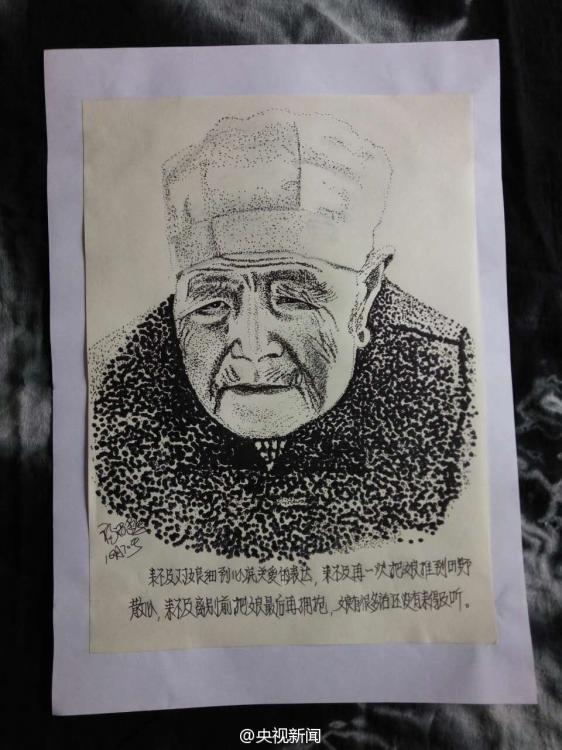 来不及对娘细到心底关爱的表达，来不及再一次把娘推到田野
散心，来不及离别前把娘最后再拥抱，娘有很多话还没有来得及听。
@央视新闻